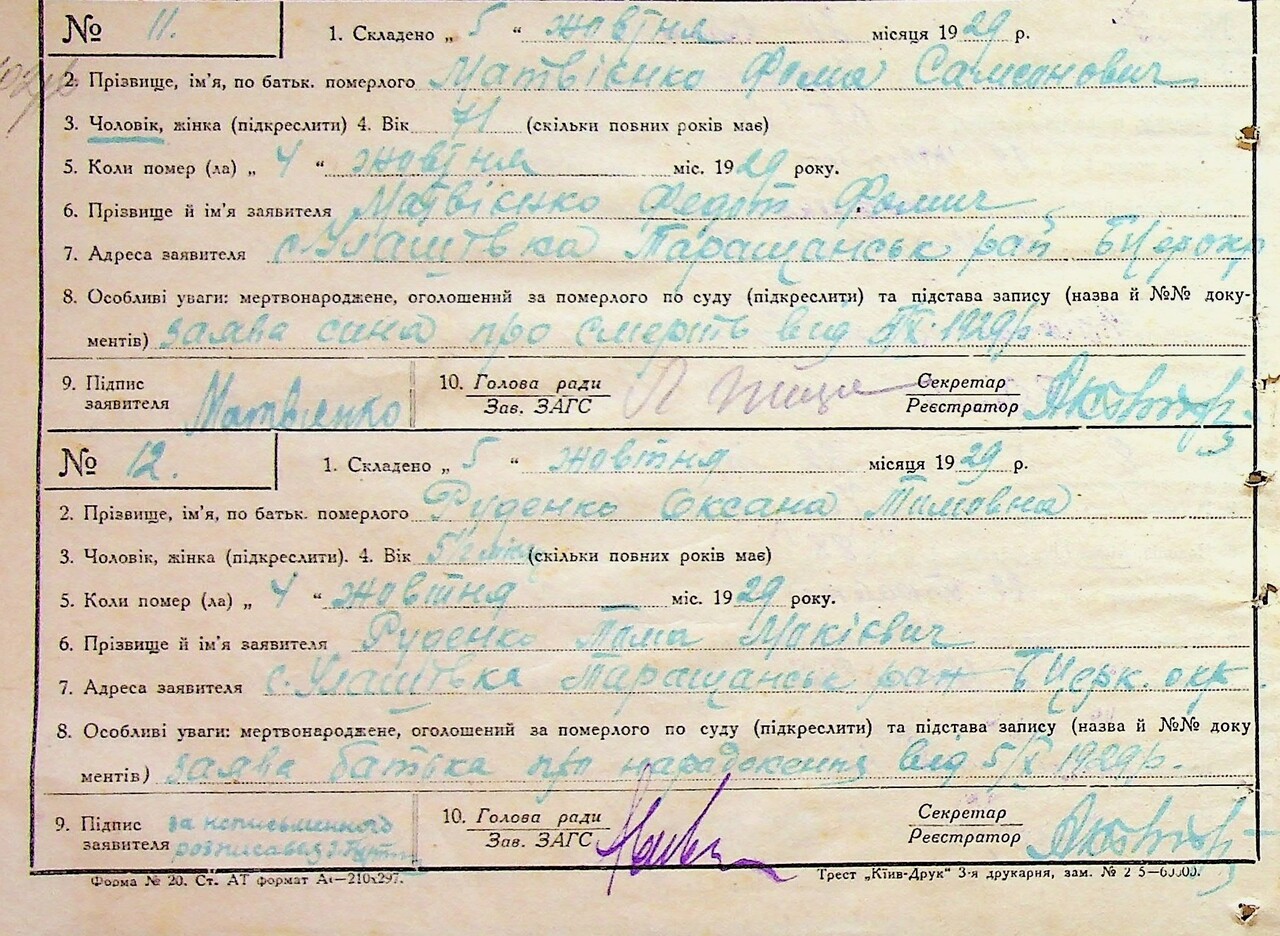 № 11. 1. Складено „ 5 “ жовтня місяця 1929 р.
2. Прізвище, ім'я, по батьк. померлого Матвієнко Фома Самсонович
3. Чоловік, жінка (підкреслити) 4. Вік 71 (скільки повних років має)
5. Коли помер (ла) „ 4 “ жовтня міс. 1929 року.
6. Прізвище й ім'я заявителя Матвієнко Федот Фомич
7. Адреса заявителя с. Улашівка Таращанськ рай БЦерокр
8. Особливі уваги: мертвонароджене, оголошений за померлого по суду (підкреслити) та підстава запису (назва й №№ доку-
ментів) заява сина про смерть від 5/X 1929 р.
9. Підпис 10. Голова ради Секретар
заявителя Матвієнко Зав. ЗАГС Реєстратор
№ 12. 1. Складено „ 5 “ жовтня місяця 1929 р.
2. Прізвище, ім'я, по батьк. померлого Руденко Оксана Тимовна
3. Чоловік, жінка (підкреслити). 4. Вік 5½ міс (скільки повних років має)
5. Коли помер (ла) „ 4 “ жовтня міс. 1929 року.
6. Прізвище й ім'я заявителя Руденко Тима Мокієвич
7. Адреса заявителя с. Улашівка Таращанськ рай БЦерк. окр.
8. Особливі уваги: мертвонароджене, оголошений за померлого по суду (підкреслити) та підстава запису (назва й №№ доку
ментів) заява батька про народження від 5/X 1929 р.
9. Підпис за неписьменного 10. Голова ради Секретар
заявителя розписався Зав. ЗАГС Реєстратор
Форма № 20. Ст. АТ формат А4—210х297. Трест „Київ-Друк“ 3-я друкарня, зам. №